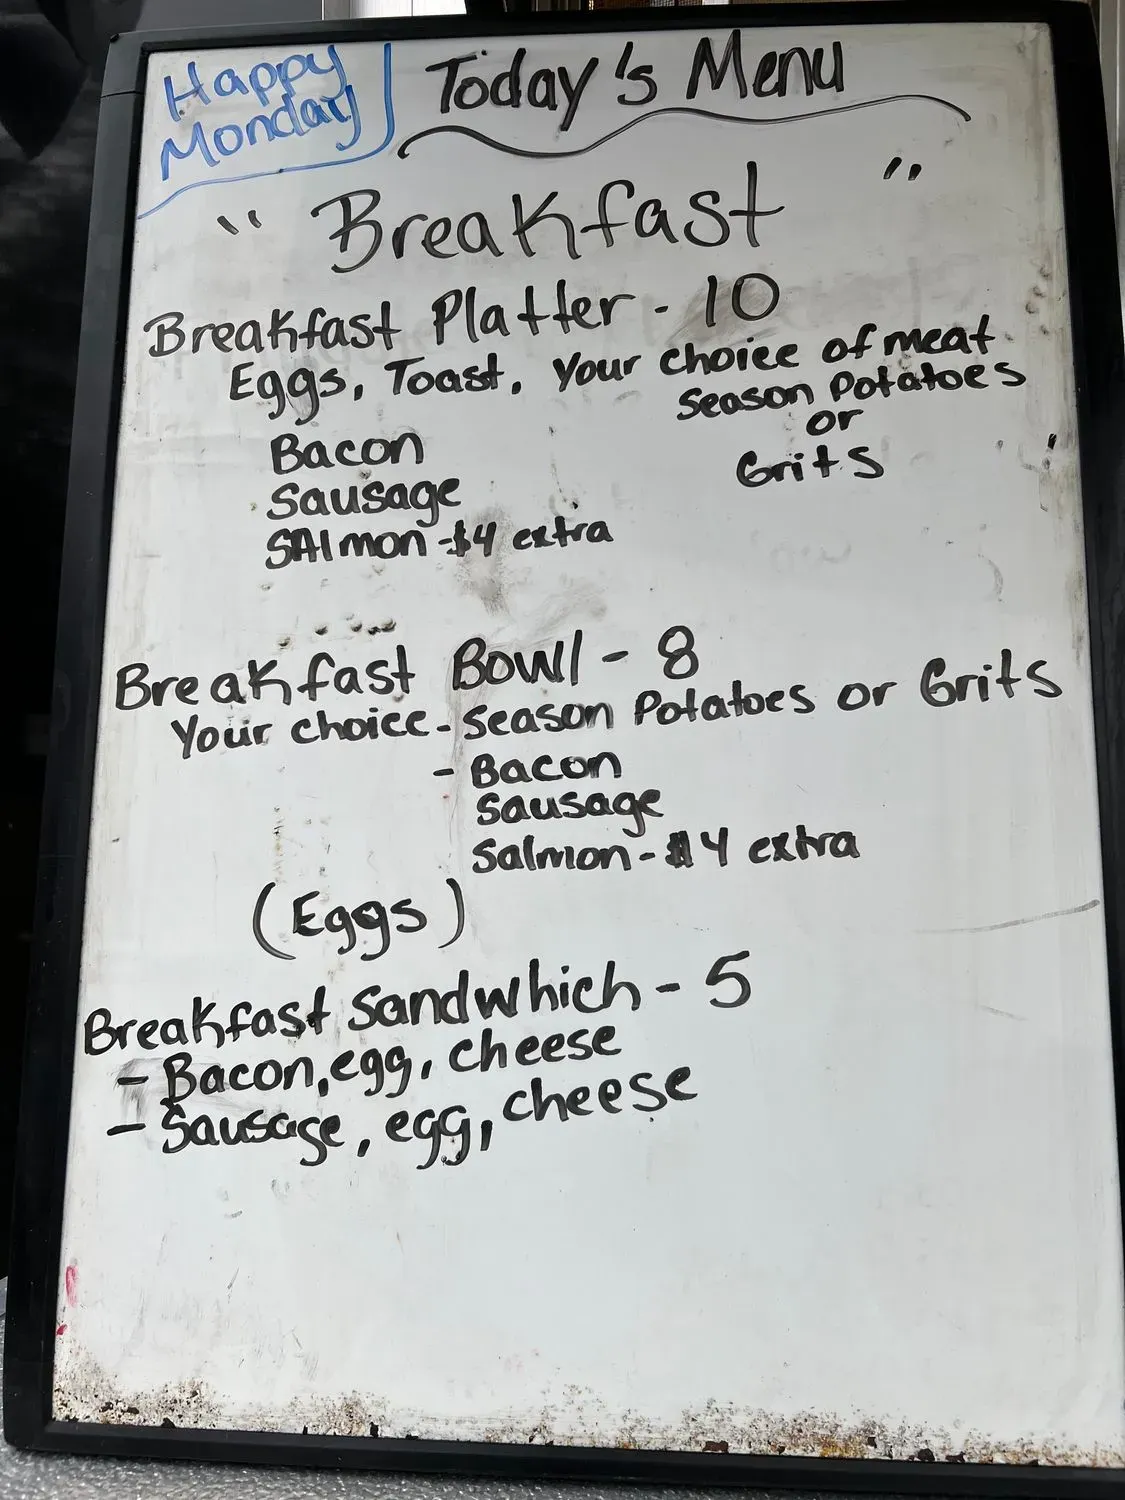 Happy
Monday
Today's Menu
" Breakfast "
Breakfast Platter - 10
Eggs, Toast, Your choice of meat
Season Potatoes
or
Grits
Bacon
Sausage
SAlmon -$4 extra
Breakfast Bowl - 8
Your choice - Season Potatoes or Grits
- Bacon
Sausage
Salmon - $4 extra
(Eggs)
Breakfast Sandwhich - 5
- Bacon, egg, cheese
- Sausage, egg, cheese